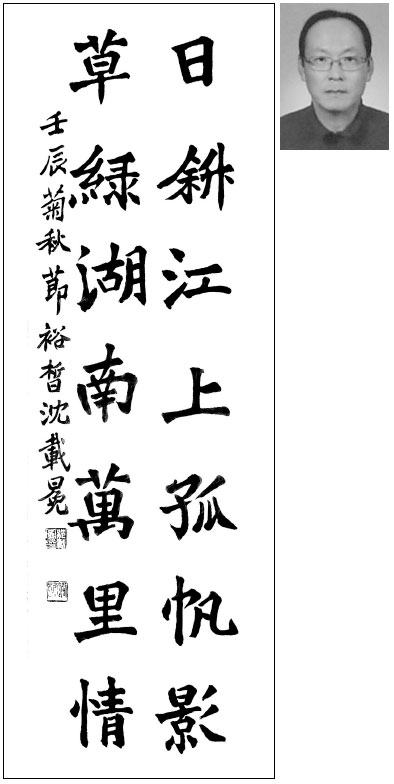 日斜江上孤帆影
草緑湖南萬里情
壬辰菊秋莭裕晳沈載晃